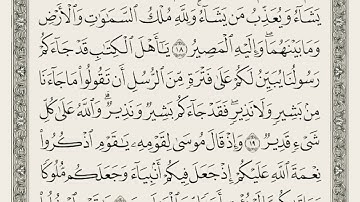 يَشَآءُ وَيُعَذِّبُ مَن يَشَآءُۚ وَلِلَّهِ مُلْكُ ٱلسَّمَٰوَٰتِ وَٱلْأَرْضِ
وَمَا بَيْنَهُمَاۖ وَإِلَيْهِ ٱلْمَصِيرُ ١٨ يَٰٓأَهْلَ ٱلْكِتَٰبِ قَدْ جَآءَكُمْ
رَسُولُنَا يُبَيِّنُ لَكُمْ عَلَىٰ فَتْرَةٍ مِّنَ ٱلرُّسُلِ أَن تَقُولُوا۟ مَا جَآءَنَا
مِنۢ بَشِيرٍ وَلَا نَذِيرٍۖ فَقَدْ جَآءَكُم بَشِيرٌ وَنَذِيرٌۗ وَٱللَّهُ عَلَىٰ كُلِّ
شَىْءٍ قَدِيرٌ ١٩ وَإِذْ قَالَ مُوسَىٰ لِقَوْمِهِۦ يَٰقَوْمِ ٱذْكُرُوا۟
نِعْمَةَ ٱللَّهِ عَلَيْكُمْ إِذْ جَعَلَ فِيكُمْ أَنۢبِيَآءَ وَجَعَلَكُم مُّلُوكًا